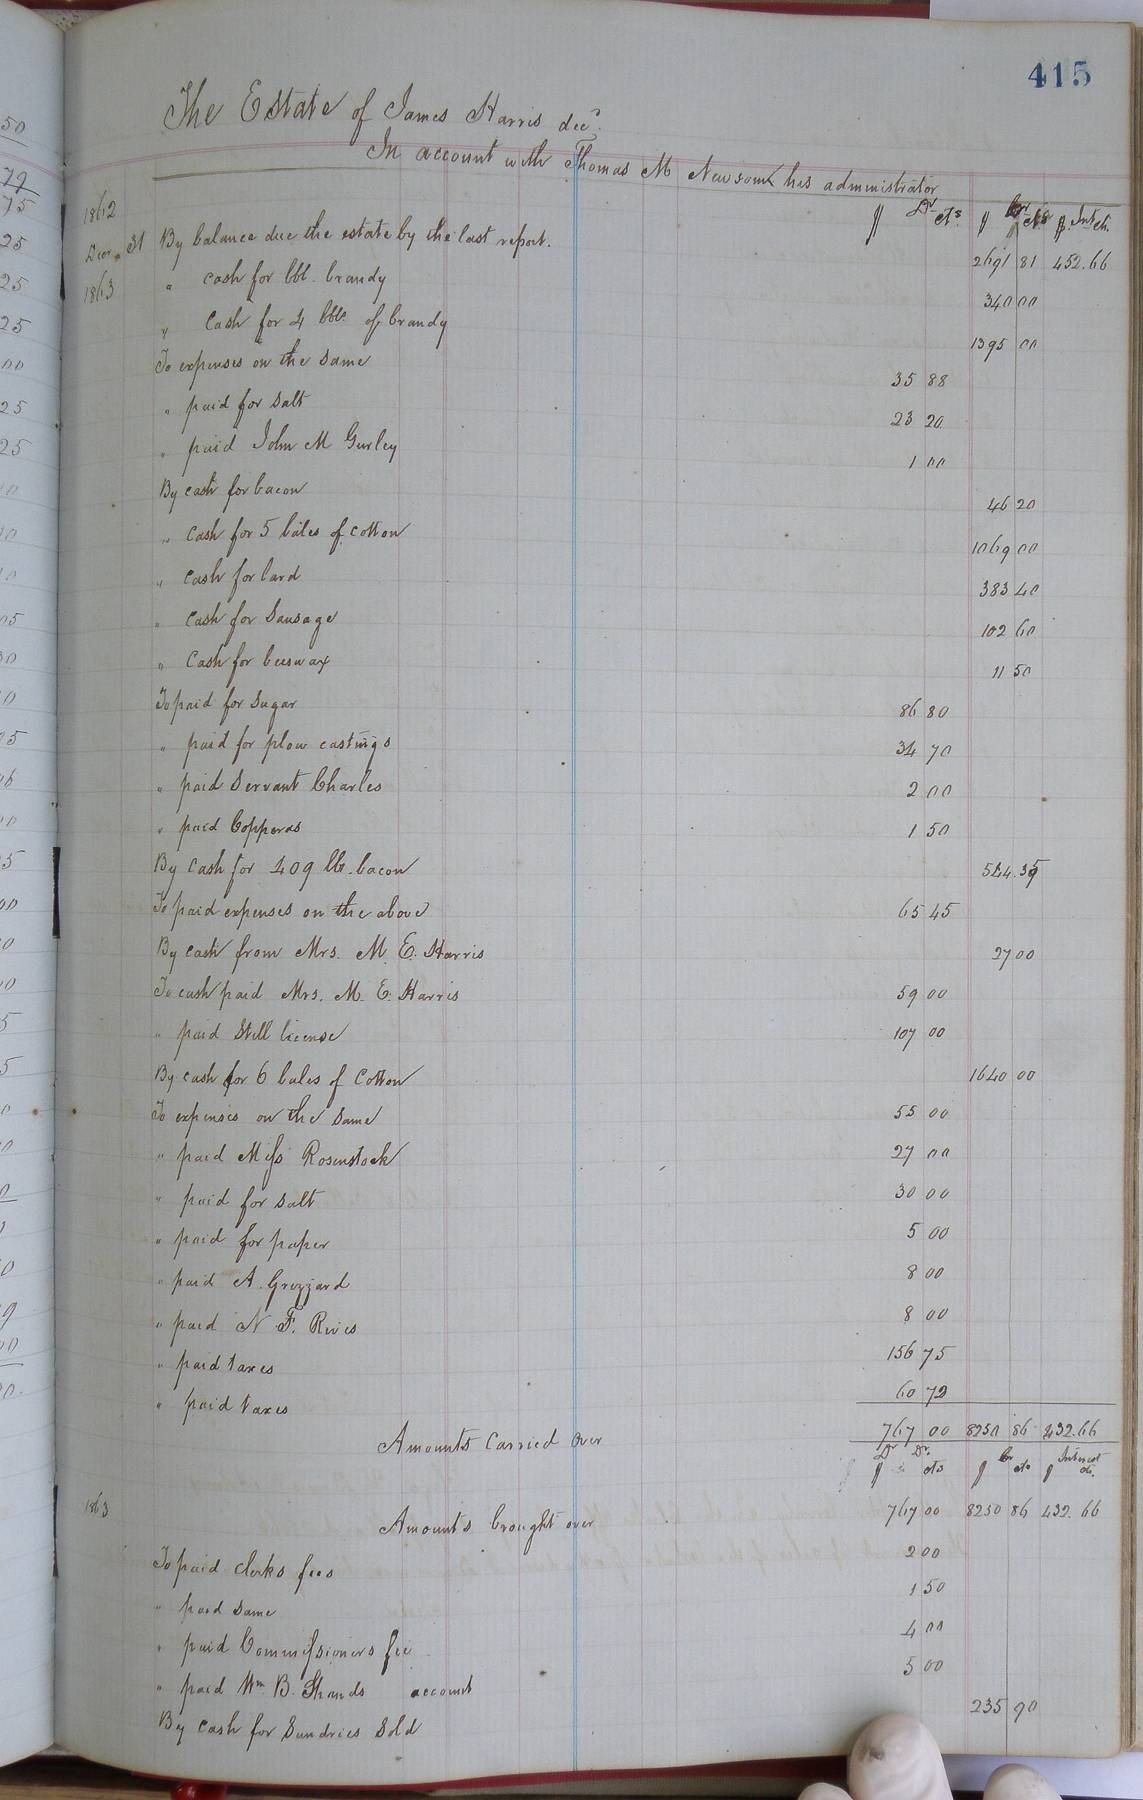 415
The Estate of James Harris decd.
In account with Thomas M Newsom his administrator
1862 $ Dr cts $ Cr cts $ Int ct.
Decr 31 By balance due the estate by the last report. 2691 81 452.66
1863 " cash for bbl. brandy 340 00
" Cash for 4 bbls of brandy 1395 00
To expenses on the same 35 88
" paid for salt 23 20
" paid John M Gurley 1 00
By cash for bacon 46 20
" Cash for 5 bales of cotton 1069 00
" Cash for lard 383 40
" Cash for Sausage 102 60
" Cash for beeswax 11 50
To paid for Sugar 86 80
" paid for plow castings 34 70
" paid Servant Charles 2 00
" paid Copperas 1 50
By Cash for 409 lb. bacon
To paid expenses on the above 65 45
By cash from Mrs. M. E. Harris 27 00
To cash paid Mrs. M. E. Harris 59 00
" paid Still license 107 00
By cash for 6 bales of Cotton 1640 00
To expenses on the same 55 00
" paid Miss Rosenstock 27 00
" paid for salt 30 00
" paid for paper 5 00
" paid A. Grizzard 8 00
" paid N. F. Rives 8 00
" paid taxes 156 75
" paid taxes 60 72
Amounts Carried Over 767 00 8250 86 432.66
$ Dr cts $ Cr cts $ Interest cts.
1863 Amounts brought over 767 00 8250 86 432.66
To paid Clerks fees 2 00
" paid same 1 50
" paid Commissioners fee 4 00
" paid Wm B. Shands account 5 00
By Cash for Sundries Sold 235 90